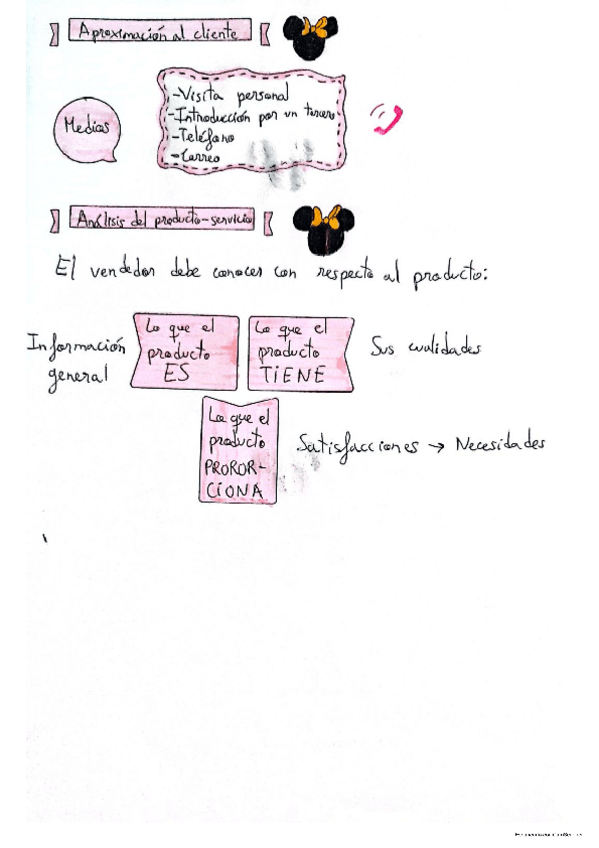 Aproximación al cliente
Medios
-Visita personal
-Introducción por un tercero
-Teléfono
-Correo
Análisis del producto-servicio
El vendedor debe conocer con respecto al producto:
Información
general
Lo que el
producto
ES
Lo que el
producto
TIENE
Sus cualidades
Lo que el
producto
PROROR-
CIONA
Satisfacciones → Necesidades